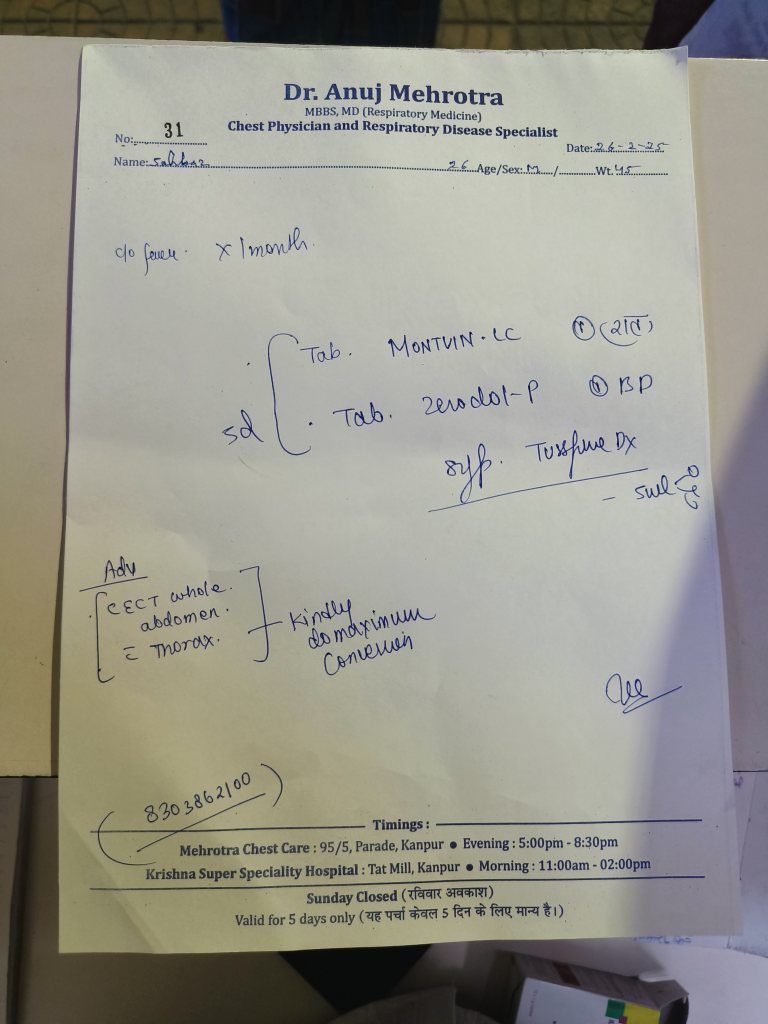 Dr. Anuj Mehrotra
MBBS, MD (Respiratory Medicine)
Chest Physician and Respiratory Disease Specialist
No: 31
Date: 26-2-25
Name: 26 Age/Sex: M / Wt. 45
c/o fever. x 1 month.
Tab. MONTVIN-LC 1 (रात)
5d
Tab. Zerodol-P 1 BD
syp. Dx
- 5ml
Adv
CECT whole
abdomen.
c̄ Thorax.
Kindly
do maximum
8303862100
Timings :
Mehrotra Chest Care : 95/5, Parade, Kanpur ● Evening : 5:00pm - 8:30pm
Krishna Super Speciality Hospital : Tat Mill, Kanpur ● Morning : 11:00am - 02:00pm
Sunday Closed (रविवार अवकाश)
Valid for 5 days only (यह पर्चा केवल 5 दिन के लिए मान्य है।)